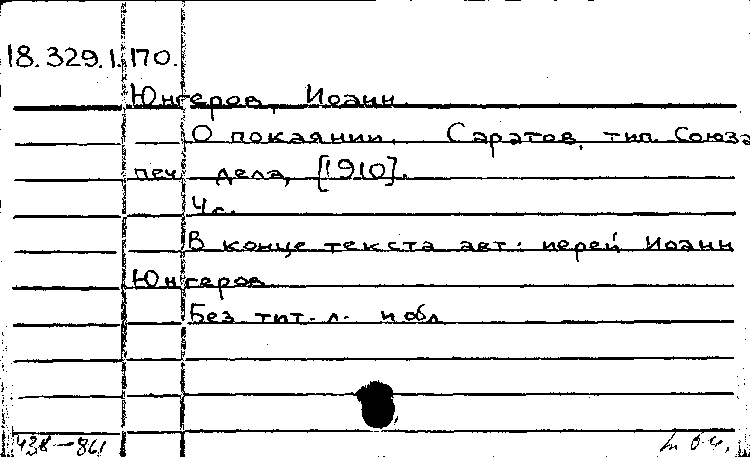 18.329.1.170.
Юнгеров, Иоанн
О покаянии. Саратов, тип. Союза
печ. дела, [1910].
4 с.
В конце текста авт.: иерей Иоанн
Юнгеров
Без тит. л. и обл.
438-861